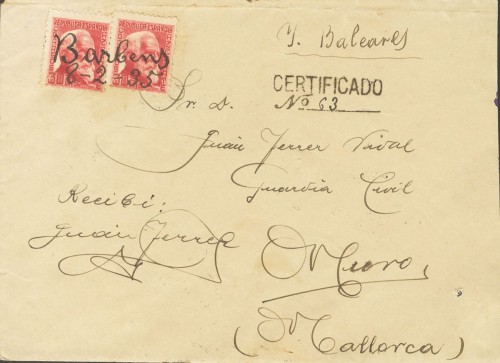 REPUBLICA ESPAÑOLA
Barbens
6-2-35
Y. Baleares
CERTIFICADO
Nº 63
Sr. D.
Juan Ferrer Vidal
Guardia Civil
Recibi:
Juan Ferrer
Muro,
(Mallorca)